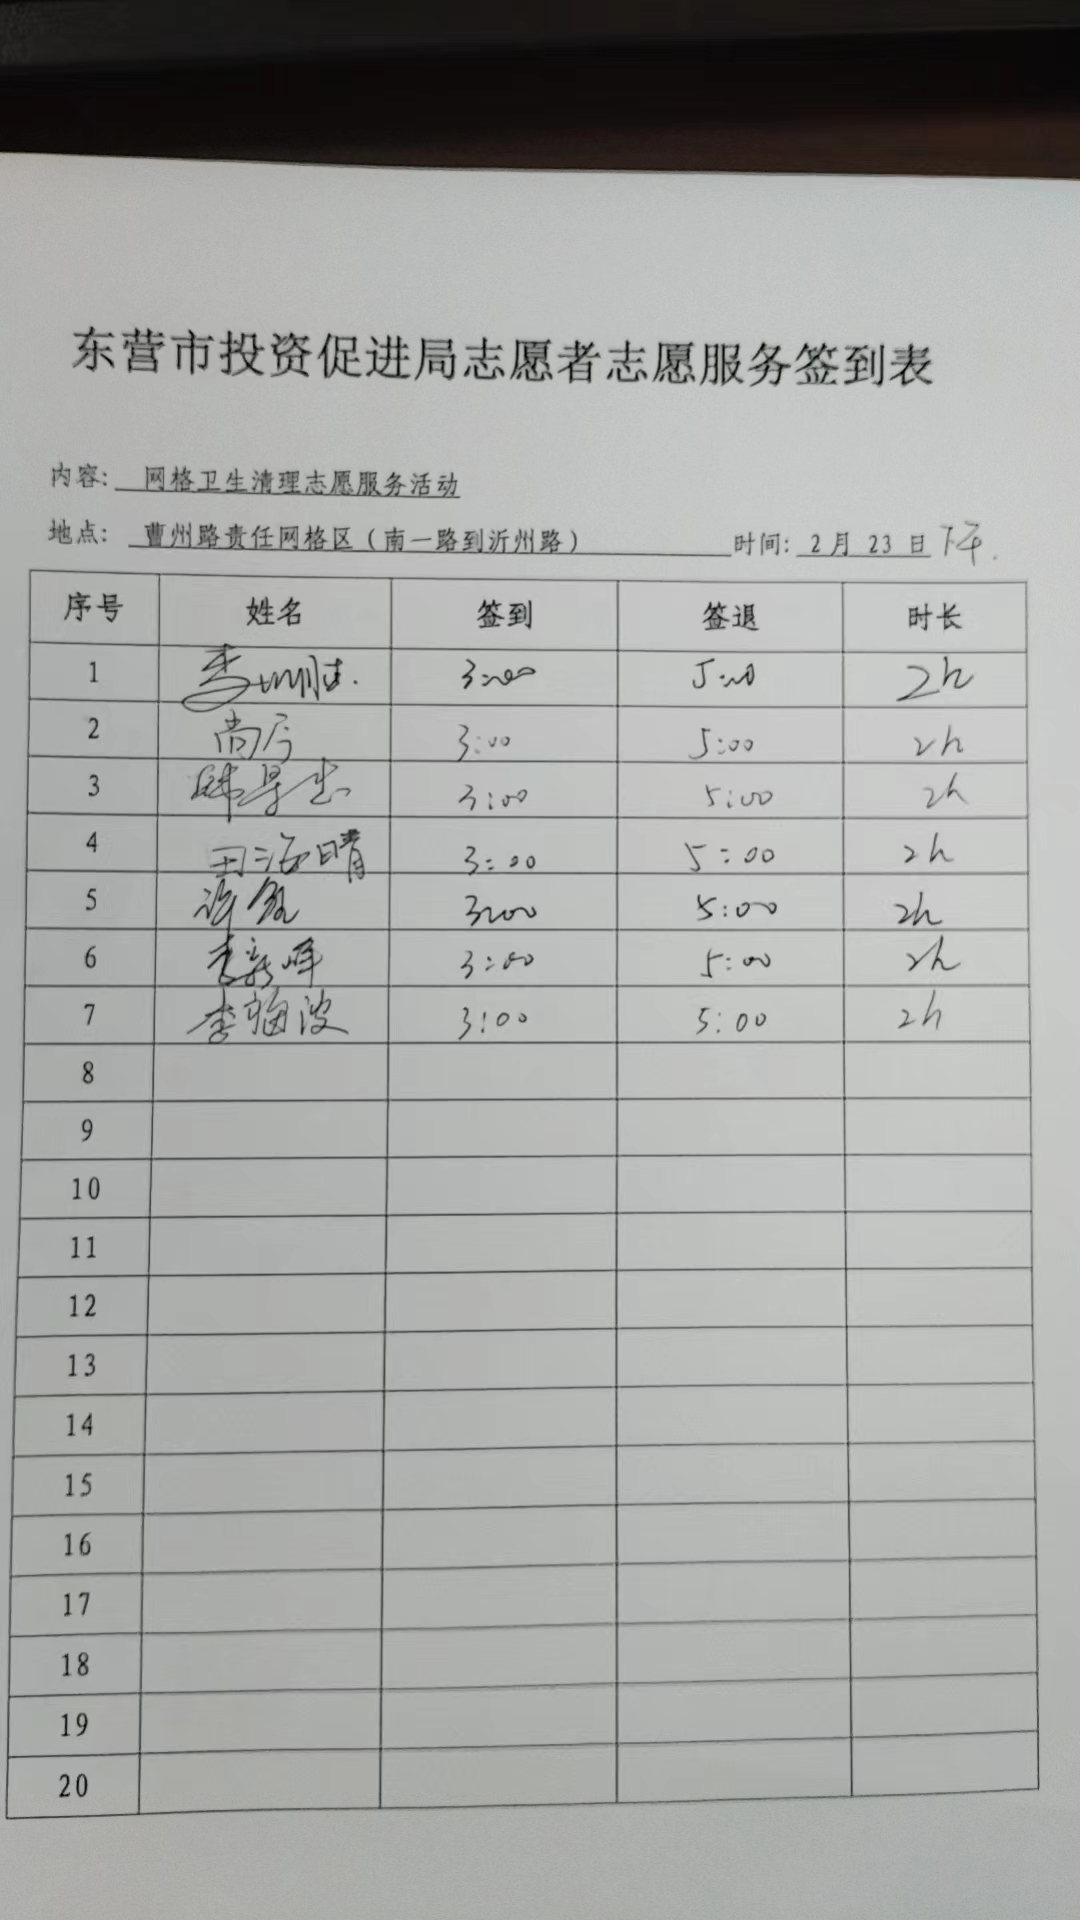 东营市投资促进局志愿者志愿服务签到表
内容: 网格卫生清理志愿服务活动
地点: 曹州路责任网格区（南一路到沂州路） 时间: 2月 23 日 下午.
序号 姓名 签到 签退 时长
1 3:00 5:00 2h
2 3:00 5:00 2h
3 3:00 5:00 2h
4 田海晴 3:00 5:00 2h
5 3:00 5:00 2h
6 李新峰 3:00 5:00 2h
7 李海波 3:00 5:00 2h
8
9
10
11
12
13
14
15
16
17
18
19
20